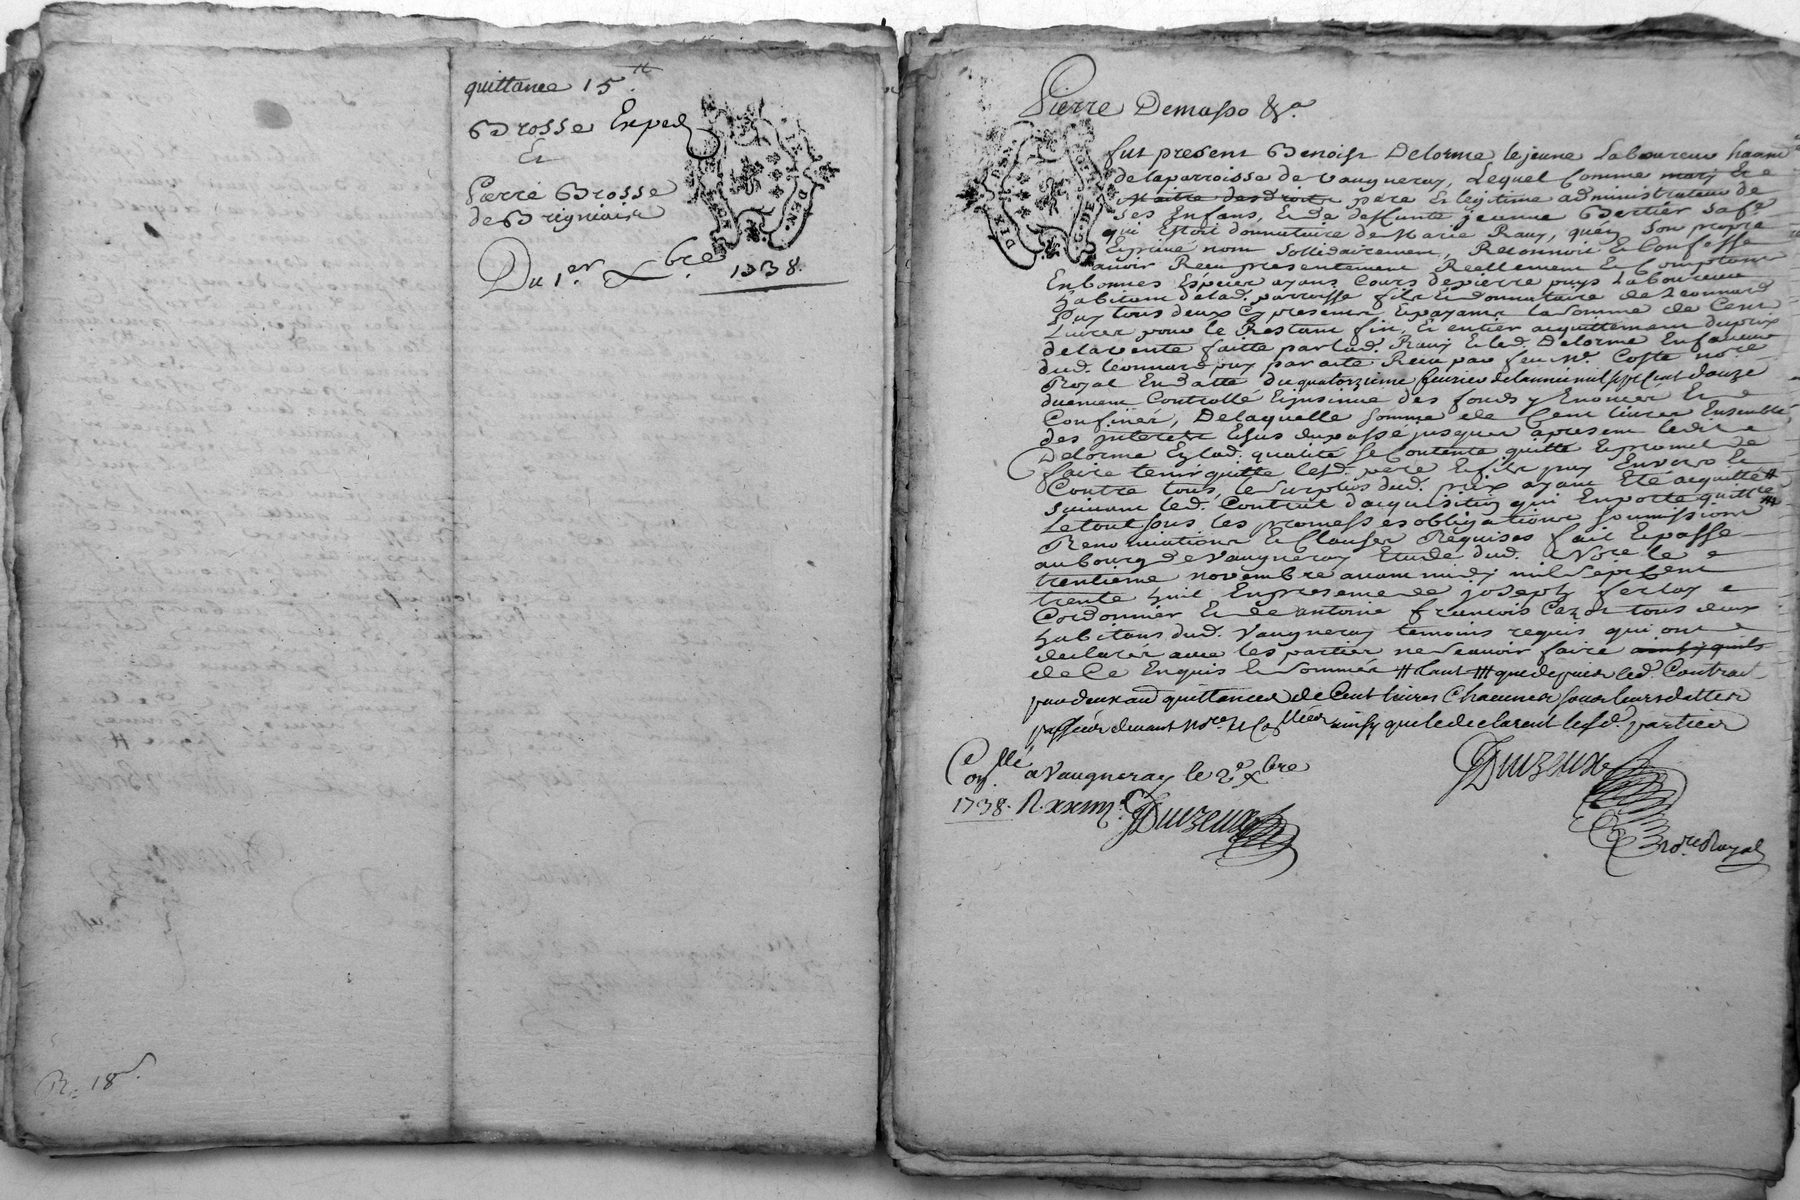 quittance 15 ₶.
Brosse Exped
Et
Pierre Brosse
de Brigniais
Du 1er. Xbre 1738.
R. 18 s.
Pierre Demasso &a.
fut present Benoist Delorme le jeune Laboureur habitant
de la parroisse de Vaugneray, Lequel Comme mary Et
Maitre des droits pere Et legitime administrateur de
ses Enfans, Et de deffunte jeanne Bertier sa fe.
qui Estoit donnataire de Marie Ravy, qu'en son propre
Et privé nom sollidairement, Reconnoit Et Confesse
avoir Receu presentement Reellement Et Comptant
En bonnes Especes ayans Cours de pierre puys Laboureur
habitant de lad. parroisse fils Et donnataire de Leonnard
Puy tous deux Cy presents Et payants la somme de Cent
Livres pour le Restant fin, Et entier acquittement du prix
de la vente faitte par lad. Ravy Et led. Delorme En faveur
dud. leonnard puy par acte Receu par feu Me. Coste nore
Royal En datte du quatorzieme fevrier de lannée mil sept cent douze
duement Controllé Et jnsinué des fonds y Enoncez Et
Confinés, De laquelle somme de Cent livres Ensemble
des jnterets Esus du passé jusques a present ledit
Delorme Esd. qualités se Contente quitte Et promet de
faire tenir quitte lesd. pere Et fils puy Envers Et
Contre tous, le surplus dud. prix ayant Eté acquitté #
suivant led. Contrat d'acquisition qui En porte quittce ##
Le tout sous les promesses obligations soumissions
Renonciations Et Clauses Requises fait Et passé
au bourg de Vaugneray Etude dud. Nore le
trentieme novembre avant midy mil sept Cent
trente huit En presence de joseph ferlay
Cordonnier Et de antoine françois Cazot tous deux
habitans dud. Vaugneray temoins requis qui ont
declaré avec les parties ne sçavoir faire ainsy quils
de Ce Enquis Et sommés # tant ## que depuis led. Contrat
par deux aud quittances de Cent livres Chacunes sous leurs dattes
passées devant Nore Et Collées ainsy que le declarent lesd. parties
Conllé a Vaugneray le 2e Xbre
1738. R. xxiiii s. Duizeux
Duizeux
nore Royal